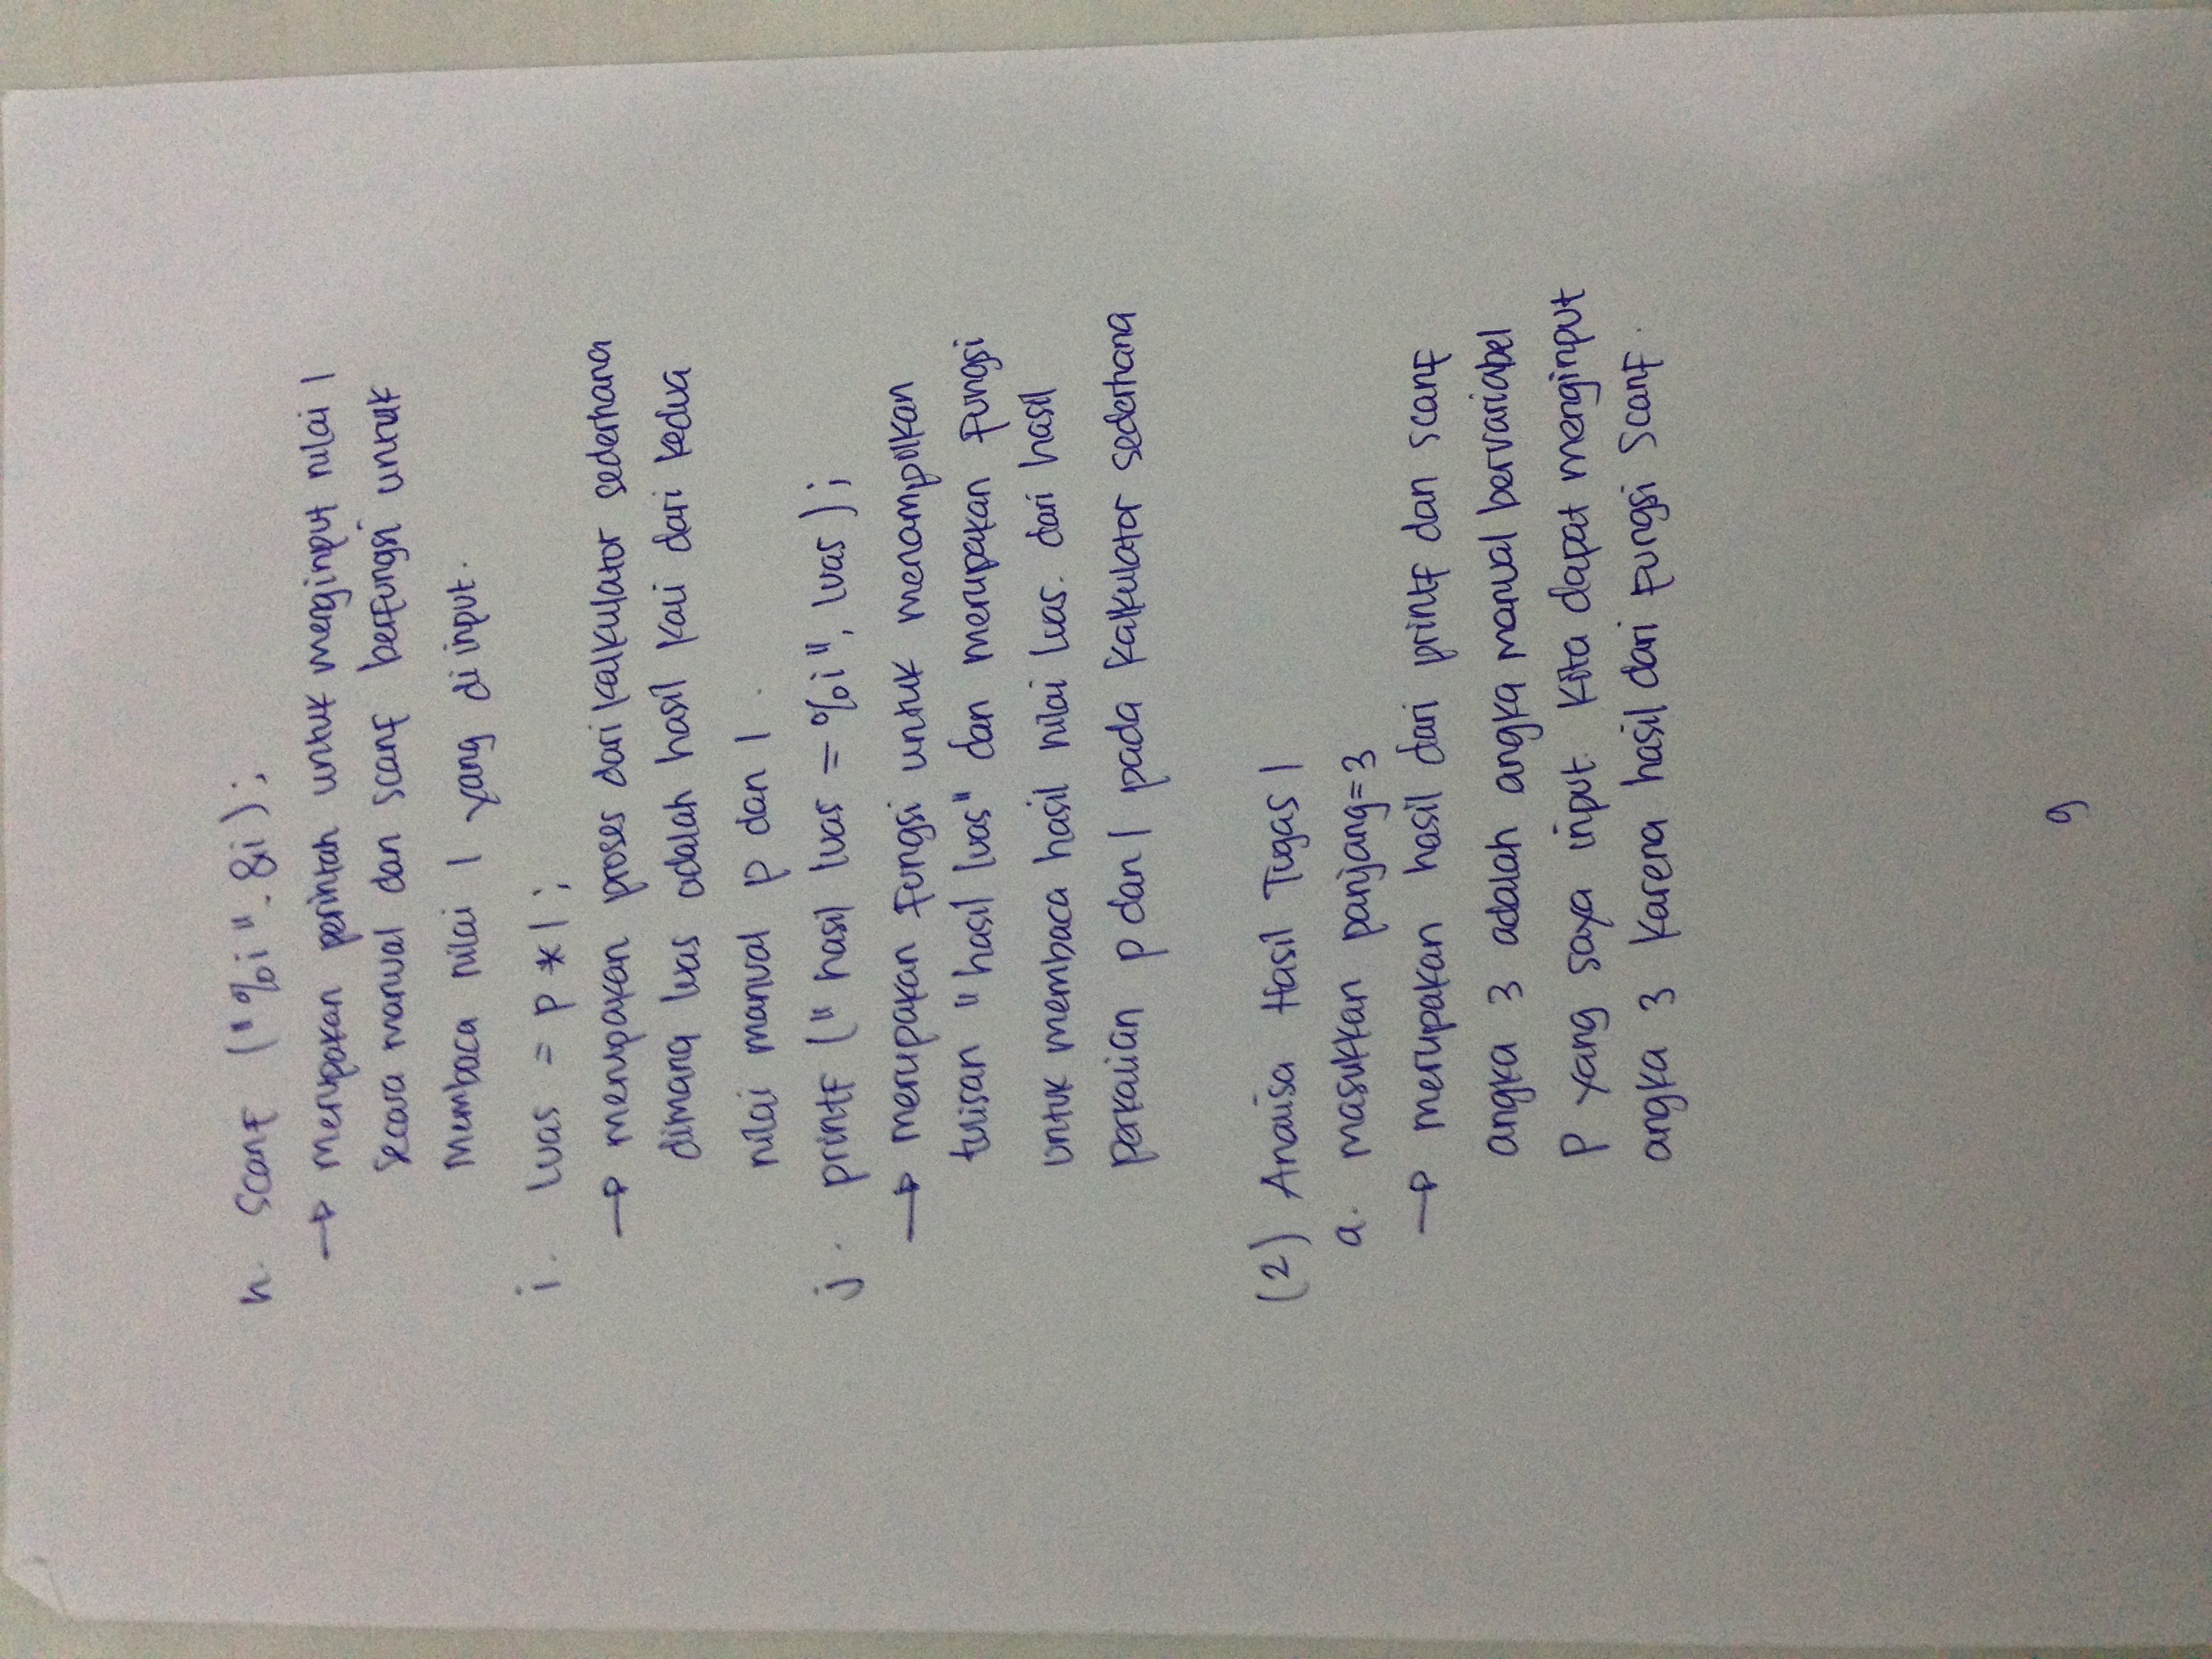 h. scanf ("%i". &i);
→ merupakan perintah untuk menginput nilai l
secara manual dan scanf berfungsi untuk
membaca nilai l yang di input.
i. luas = p * l ;
→ merupakan proses dari kalkulator sederhana
dimana luas adalah hasil kali dari kedua
nilai manual p dan l .
j. printf (" hasil luas = %i", luas );
→ merupakan fungsi untuk menampilkan
tulisan "hasil luas" dan merupakan fungsi
untuk membaca hasil nilai luas. dari hasil
perkalian p dan l pada kalkulator sederhana
(2) Analisa Hasil Tugas 1
a. masukkan panjang=3
→ merupakan hasil dari printf dan scanf
angka 3 adalah angka manual bervariabel
P yang saya input. Kita dapat menginput
angka 3 karena hasil dari fungsi scanf.
9